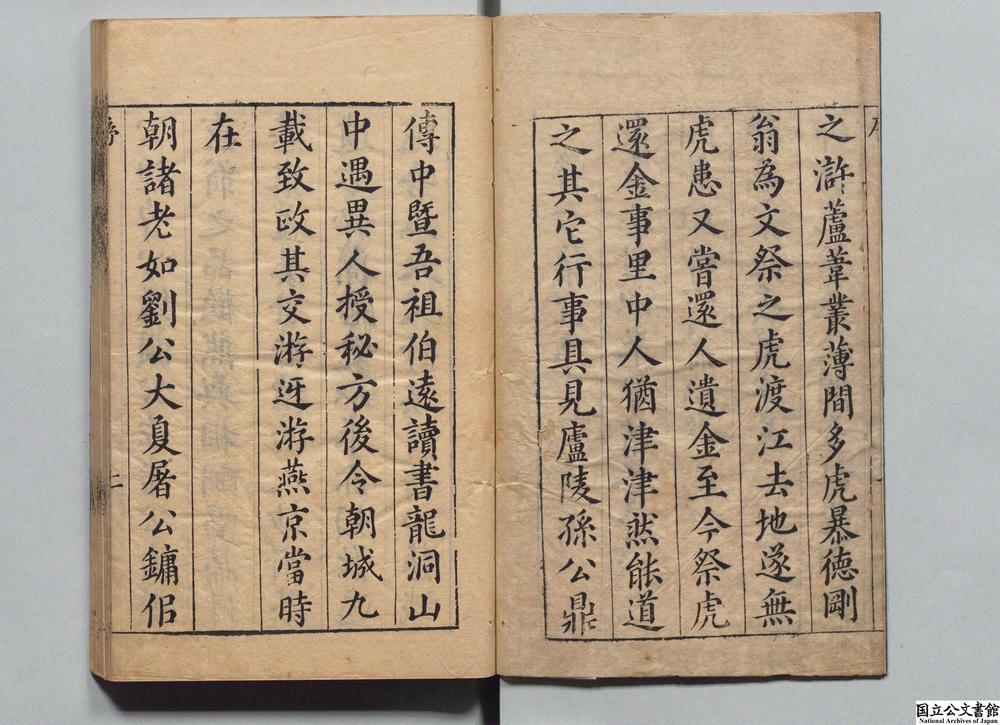 之滸蘆葦叢薄間多虎暴德剛
翁為文祭之虎渡江去地遂無
虎患又嘗還人遺金至今祭虎
還金事里中人猶津津然能道
之其它行事具見廬陵孫公鼎
傳中暨吾祖伯遠讀書龍洞山
中遇異人授秘方後令朝城九
載致政其交游迓游燕京當時
在
朝諸老如劉公大夏屠公鏞佀
序
二
国立公文書館
National Archives of Japan